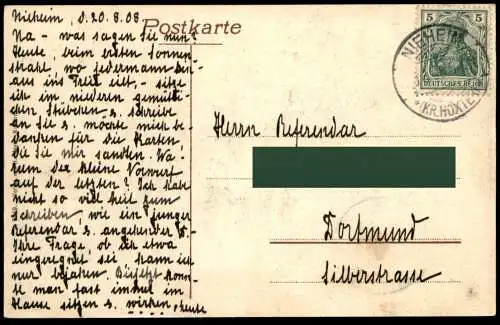 Nieheim, d. 20.8.08
Postkarte
Na - was sagen Sie nun?
Heute, beim ersten Sonnen-
strahl, wo jedermann hin-
aus ins Freie eilt, - sitze
ich im niedern gemüt-
chen Stübchen u. schreibe
an Sie u. möchte mich be-
danken für die Karten
die Sie mir sandten. Wa-
rum der kleine Vorwurf
auf der letzten? Ich habe
nicht so viel Zeit zum
Schreiben, wie ein junger
Referendar u. angehender
Ihre Frage, ob ich etwa
eingeregnet sei, kann ich
nur bejahen. konn-
te man fast immer im
Hause sitzen u. wirken, heute
5 5
DEUTSCHES REICH
NIEHEIM
(KR. HÖXTER)
Herrn Referendar
Dortmund
Silberstrasse